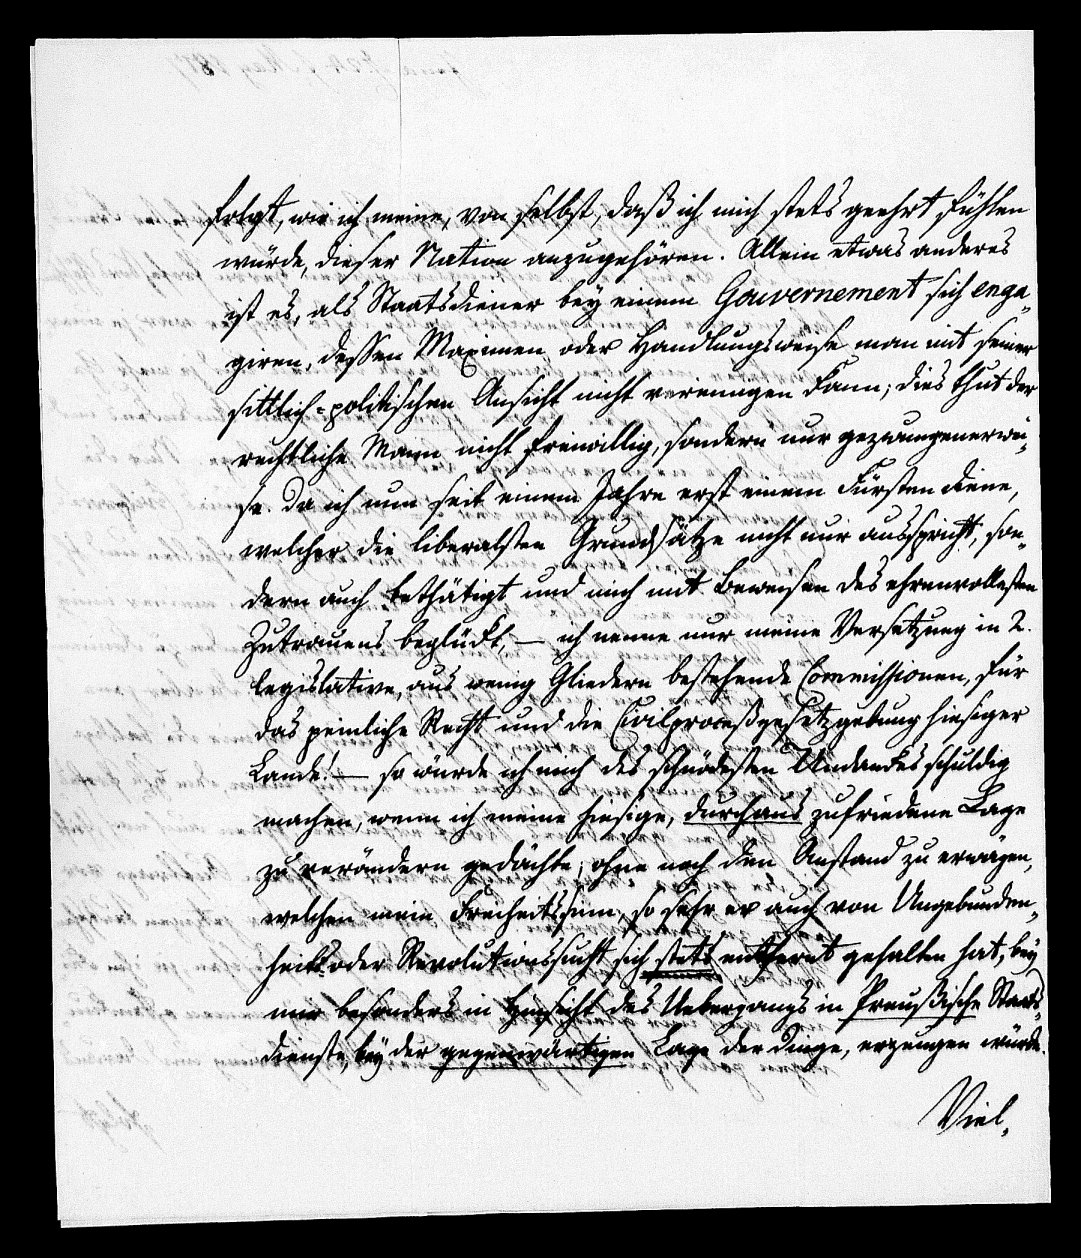 folgt, wie ich meine, von selbst, daß ich mich stets geehrt fühlen
würde, dieser Nation anzugehören. Allein etwas anderes
ist es, als Staatsdiener bey einem Gouvernement sich enga-
giren, dessen Maximen oder Handlungsweise man mit seiner
sittlich-politischen Ansicht nicht vereinigen kann; dies thut der
rechtliche Mann nicht freiwillig, sondern nur gezwungenerwei-
se. Da ich nun seit einem Jahre erst einem Fürsten diene,
welcher die liberalsten Grundsätze nicht nur ausspricht, son-
dern auch bethätigt und mich mit Beweisen des ehrenvollesten
Zutrauens beglückt, — ich nenne nur meine Versetzung in 2.
legislative, aus wenig Gliedern bestehende Commissionen, für
das peinliche Recht und die Civilproceßgesetzgebung hiesiger
Lande! — so würde ich mich des schnödesten Undankes schuldig
machen, wenn ich meine hiesige, durchaus zufriedene Lage
zu verändern gedächte, ohne noch den Anstand zu erwägen,
welchen mein Freiheitssinn, so sehr er auch von Ungebunden-
heit oder Revolutionssucht sich stets entfernt gehalten hat, bey
mir besonders in Hinsicht des Uebergangs in Preußische Staats-
dienste, bey der gegenwärtigen Lage der Dinge, erzeugen würde.
Viel-